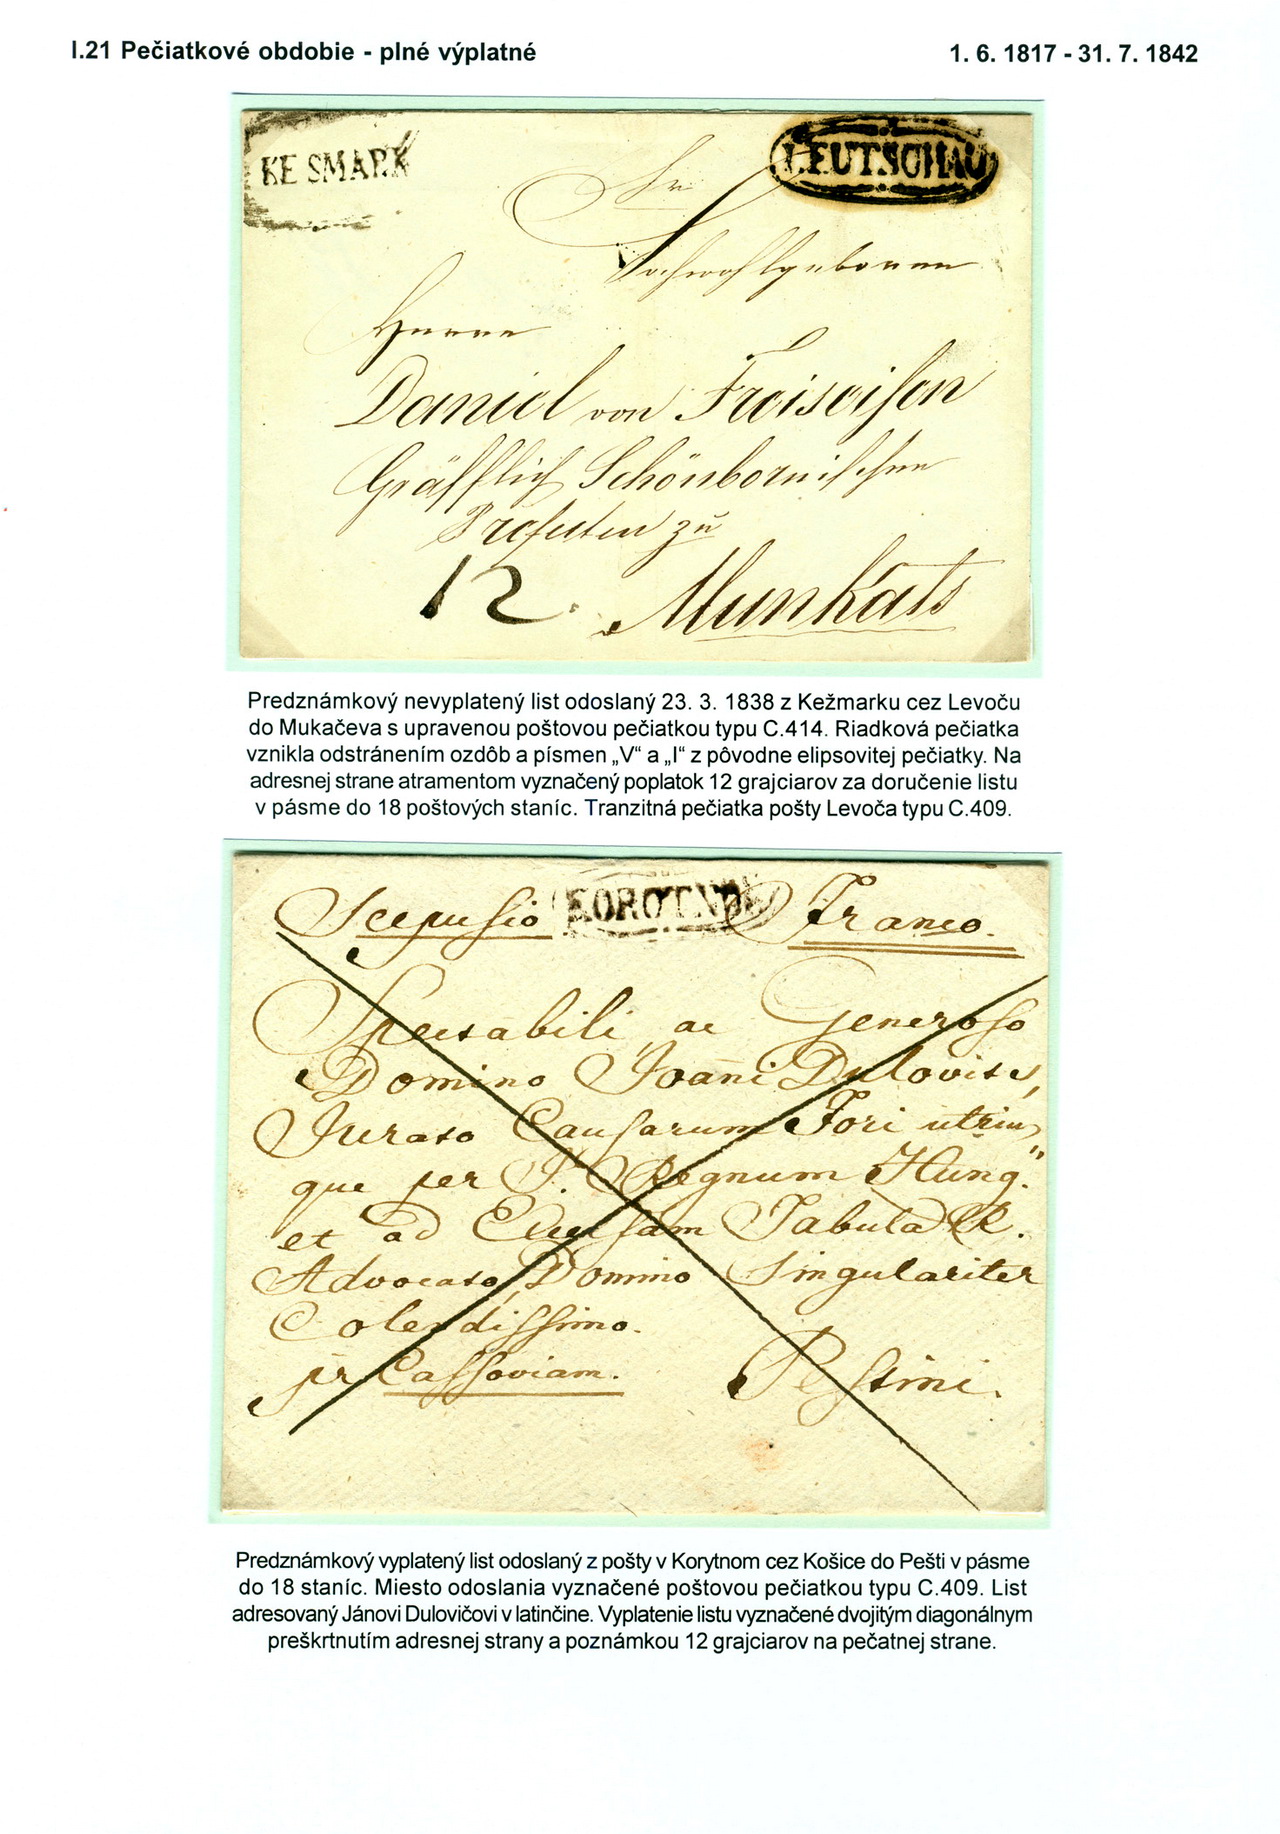 I.21 Pečiatkové obdobie - plné výplatné
1. 6. 1817 - 31. 7. 1842
KE SMARK
LEUTSCHAU
Sr
Hochwohlgeboren
Herrn
Daniel von Freiseisen
Gräfflich Schönbornischen
Präfecten zu
12.
Munkáts
Predznámkový nevyplatený list odoslaný 23. 3. 1838 z Kežmarku cez Levoču
do Mukačeva s upravenou poštovou pečiatkou typu C.414. Riadková pečiatka
vznikla odstránením ozdôb a písmen „V“ a „I“ z pôvodne elipsovitej pečiatky. Na
adresnej strane atramentom vyznačený poplatok 12 grajciarov za doručenie listu
v pásme do 18 poštových staníc. Tranzitná pečiatka pošty Levoča typu C.409.
Scepusio KOROTNOK Franco.
Spectabili ac Generoso
Domino Joani Dulovits,
Jurato Causarum Fori utrius
que per I. Regnum Hung.
et ad Excelsam Tabulã R.
Advocato, Domino Singulariter
Colendissimo.
pr Cassoviam. Pestini.
Predznámkový vyplatený list odoslaný z pošty v Korytnom cez Košice do Pešti v pásme
do 18 staníc. Miesto odoslania vyznačené poštovou pečiatkou typu C.409. List
adresovaný Jánovi Dulovičovi v latinčine. Vyplatenie listu vyznačené dvojitým diagonálnym
preškrtnutím adresnej strany a poznámkou 12 grajciarov na pečatnej strane.